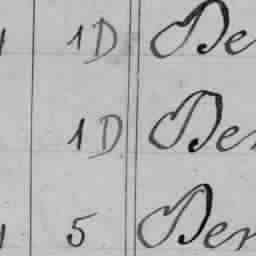 1D Be
1D Ber
5 Ber